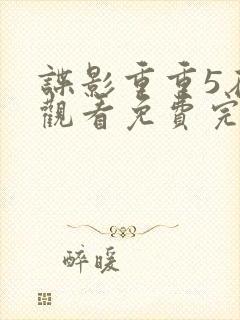 諜影重重5
觀看免費完
醉暖